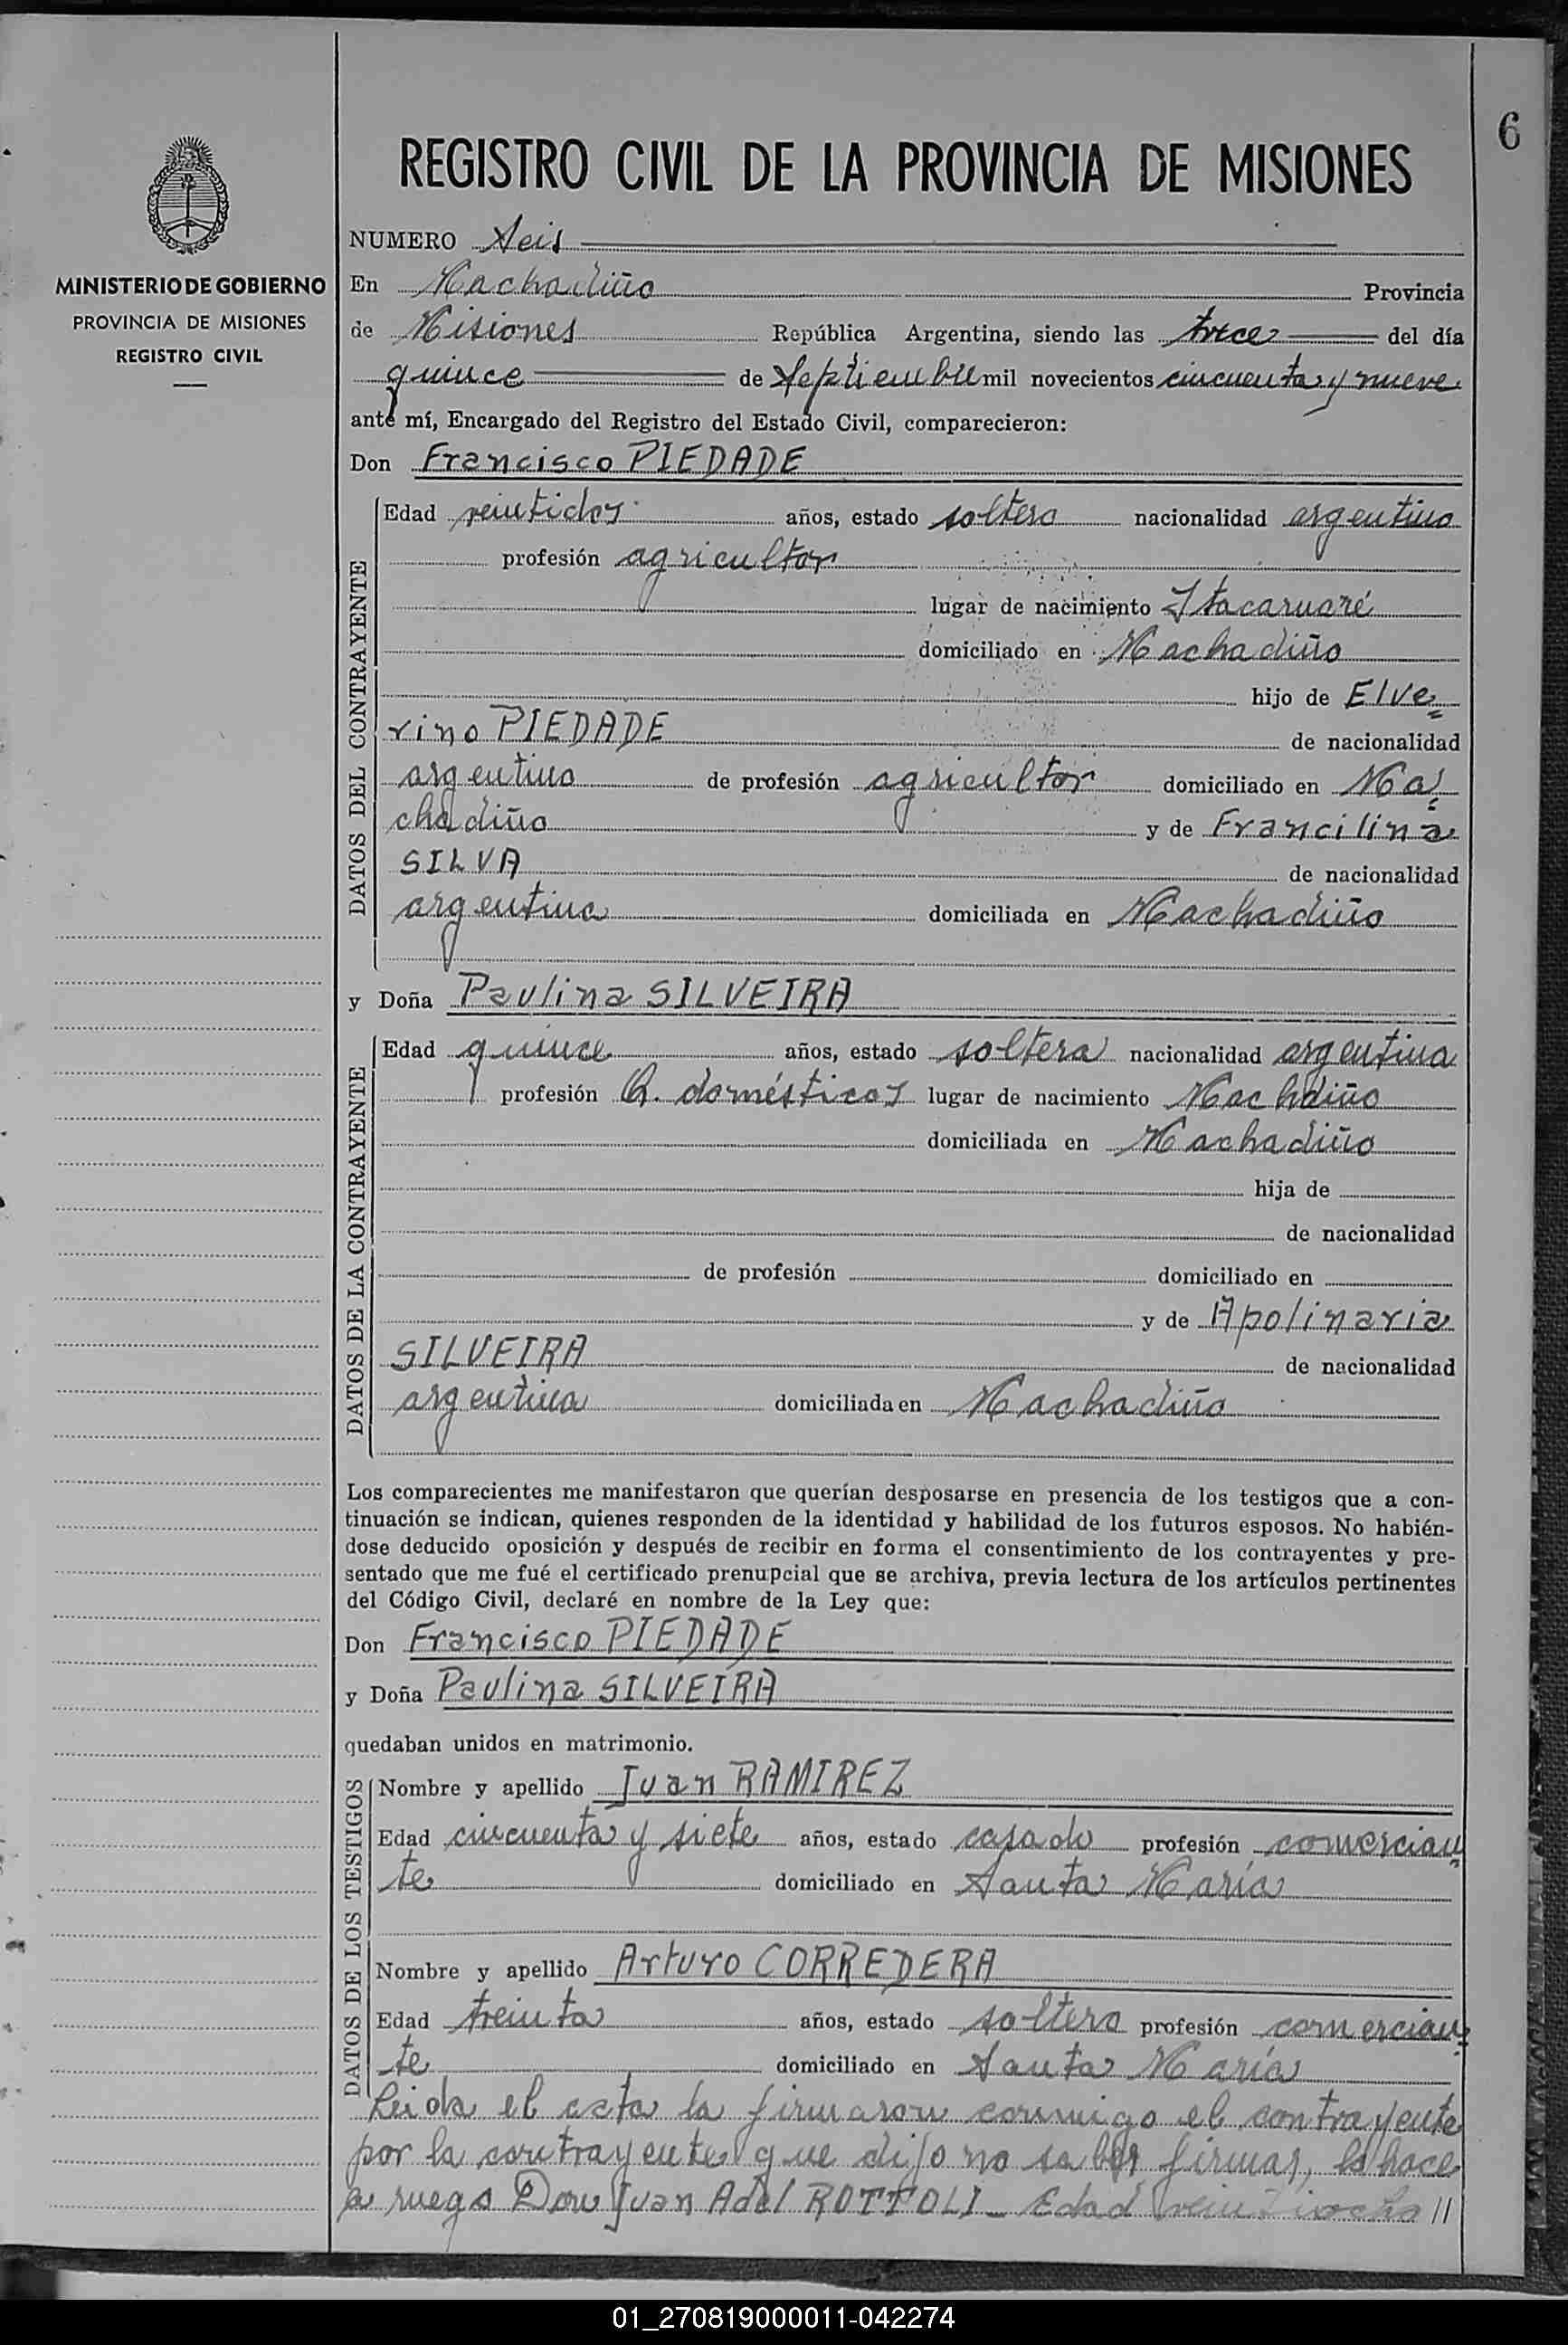 6
REGISTRO CIVIL DE LA PROVINCIA DE MISIONES
MINISTERIO DE GOBIERNO
PROVINCIA DE MISIONES
REGISTRO CIVIL
NUMERO Seis
En Machadiño Provincia
de Misiones República Argentina, siendo las trece del día
quince de Septiembre mil novecientos cincuenta y nueve
ante mí, Encargado del Registro del Estado Civil, comparecieron:
Don Francisco PIEDADE
DATOS DEL CONTRAYENTE
Edad veintidos años, estado soltero nacionalidad argentino
profesión agricultor
lugar de nacimiento Itacaruaré
domiciliado en Machadiño
hijo de Elve=
rino PIEDADE de nacionalidad
argentino de profesión agricultor domiciliado en Ma=
chadiño y de Francilina
SILVA de nacionalidad
argentina domiciliada en Machadiño
y Doña Paulina SILVEIRA
DATOS DE LA CONTRAYENTE
Edad quince años, estado soltera nacionalidad argentina
profesión Q. domésticos lugar de nacimiento Machdiño
domiciliada en Machadiño
hija de
de nacionalidad
de profesión domiciliado en
y de Apolinaria
SILVEIRA de nacionalidad
argentina domiciliada en Machadiño
Los comparecientes me manifestaron que querían desposarse en presencia de los testigos que a con-
tinuación se indican, quienes responden de la identidad y habilidad de los futuros esposos. No habién-
dose deducido oposición y después de recibir en forma el consentimiento de los contrayentes y pre-
sentado que me fué el certificado prenupcial que se archiva, previa lectura de los artículos pertinentes
del Código Civil, declaré en nombre de la Ley que:
Don Francisco PIEDADE
y Doña Paulina SILVEIRA
quedaban unidos en matrimonio.
DATOS DE LOS TESTIGOS
Nombre y apellido Juan RAMIREZ
Edad cincuenta y siete años, estado casado profesión comercian=
te domiciliado en Santa María
Nombre y apellido Arturo CORREDERA
Edad treinta años, estado soltero profesión comercian=
te domiciliado en Santa María
Leida el acta la firmaron conmigo el contrayente
por la contrayente que dijo no saber firmar, lo hace
a ruego Don Juan Adel ROTTOLI - Edad veintiocho //
01_270819000011-042274